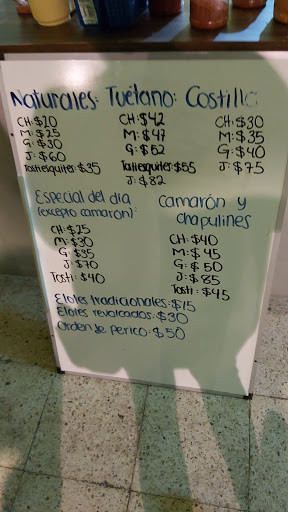 Naturales: Tuétano: Costilla
CH: $20 CH: $42 CH: $30
M: $25 M: $47 M: $35
G: $30 G: $52 G: $40
J: $60 Tostiesquites: $55 J: $75
Tostiesquites: $35 J: $82
Especial del día
(excepto camarón):
CH: $25
M: $30
G: $35
J: $70
Tosti: $40
Camarón y
chapulines
CH: $40
M: $45
G: $50
J: $85
Tosti: $45
Elotes tradicionales: $15
Elotes revolcados: $30
Orden de perico: $50